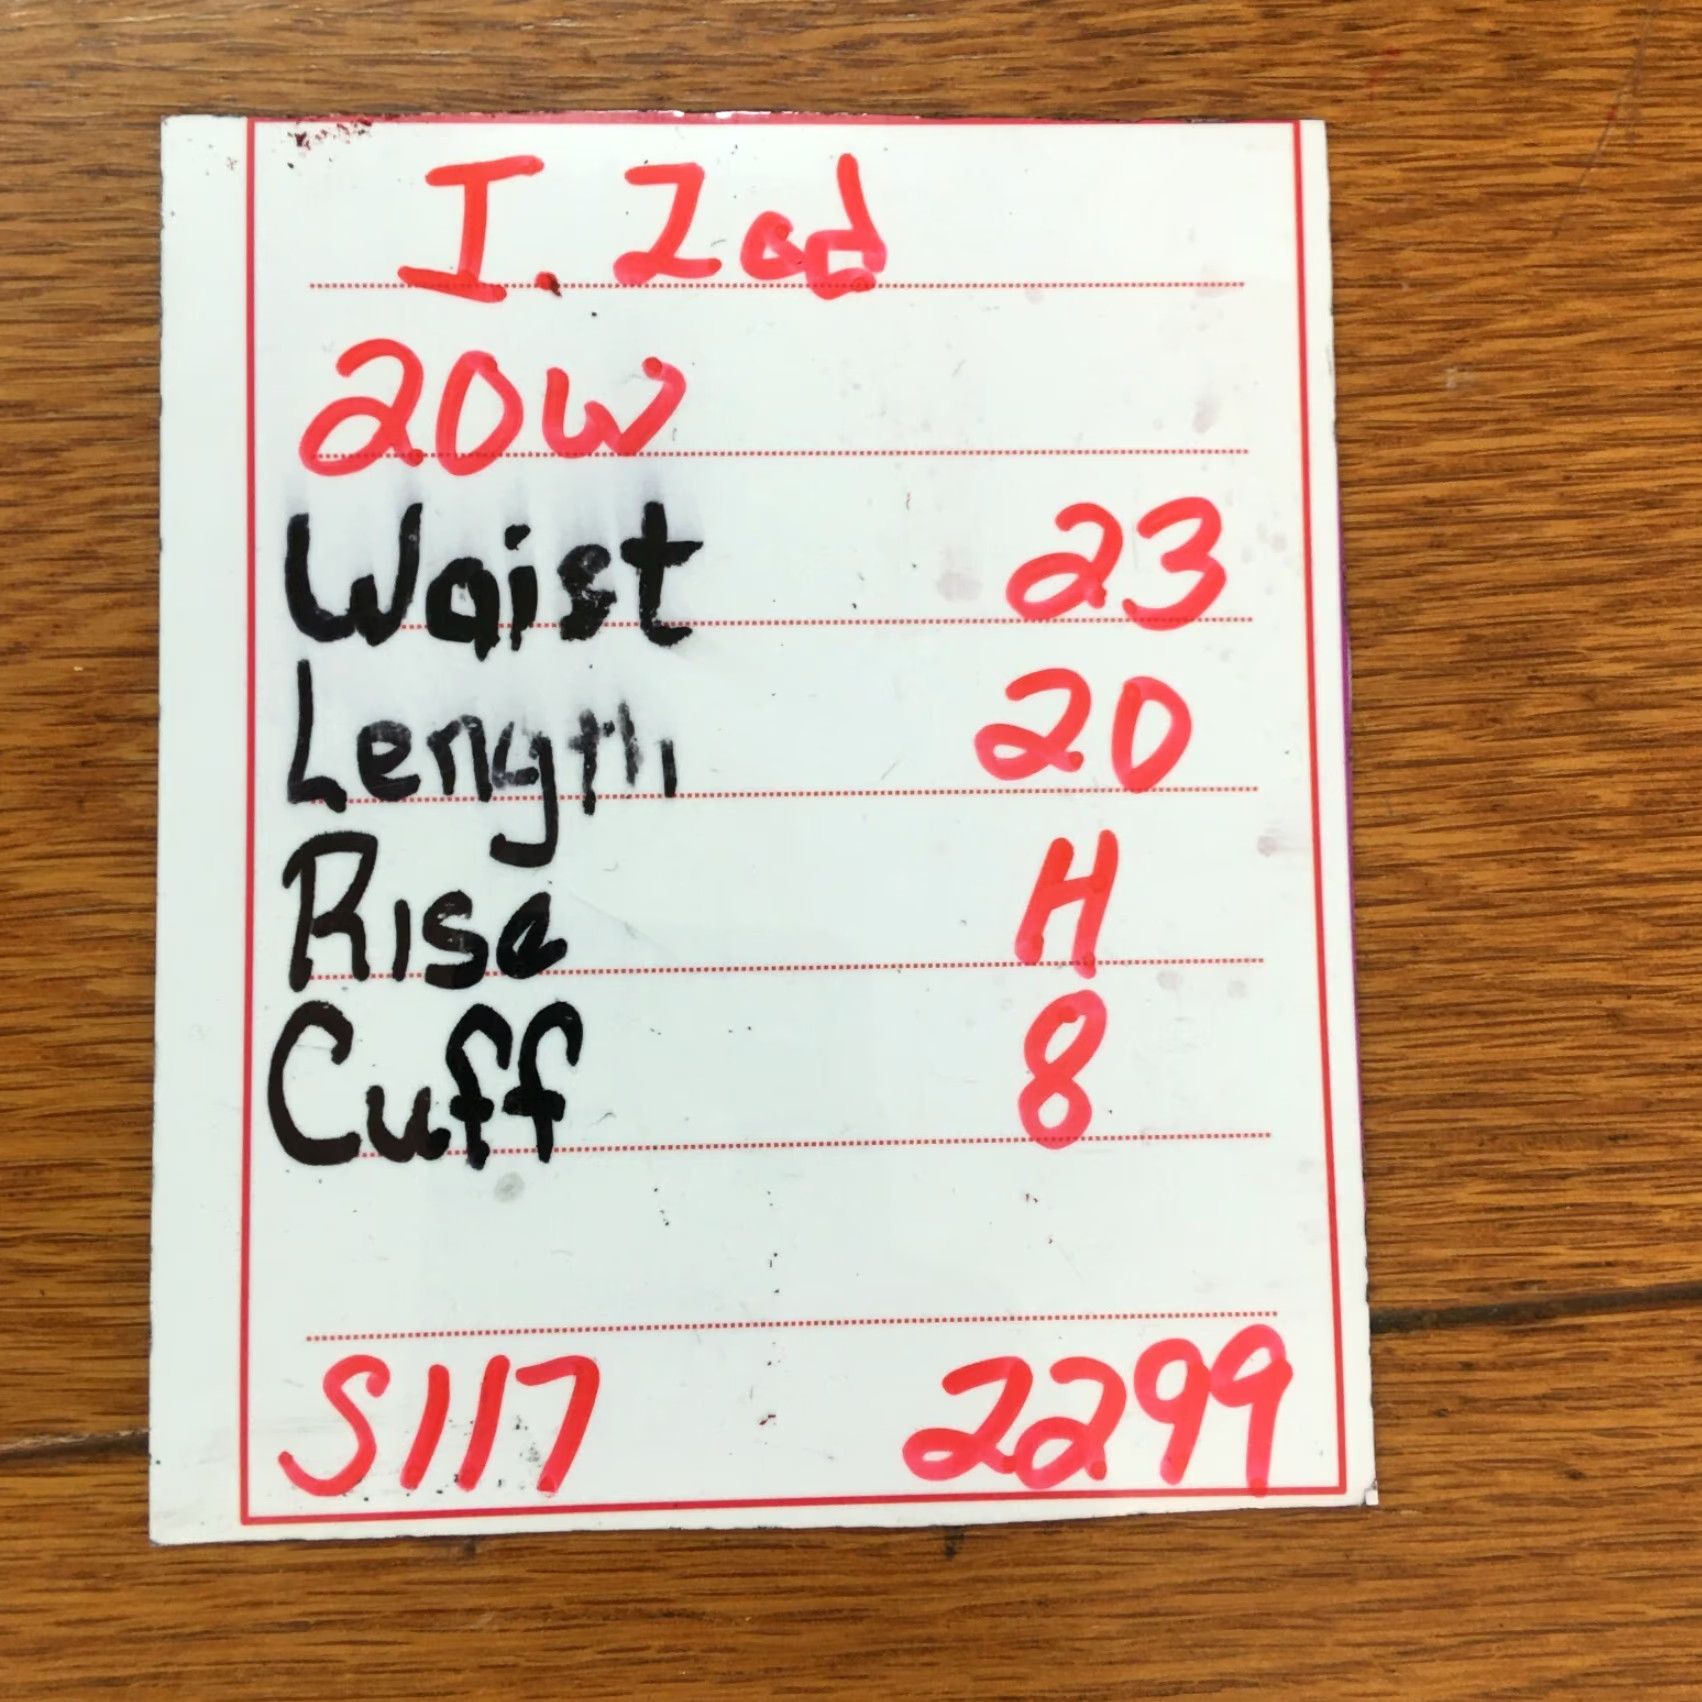 I. Zad
20W
Waist 23
Length 20
Rise H
Cuff 8
S117 2299